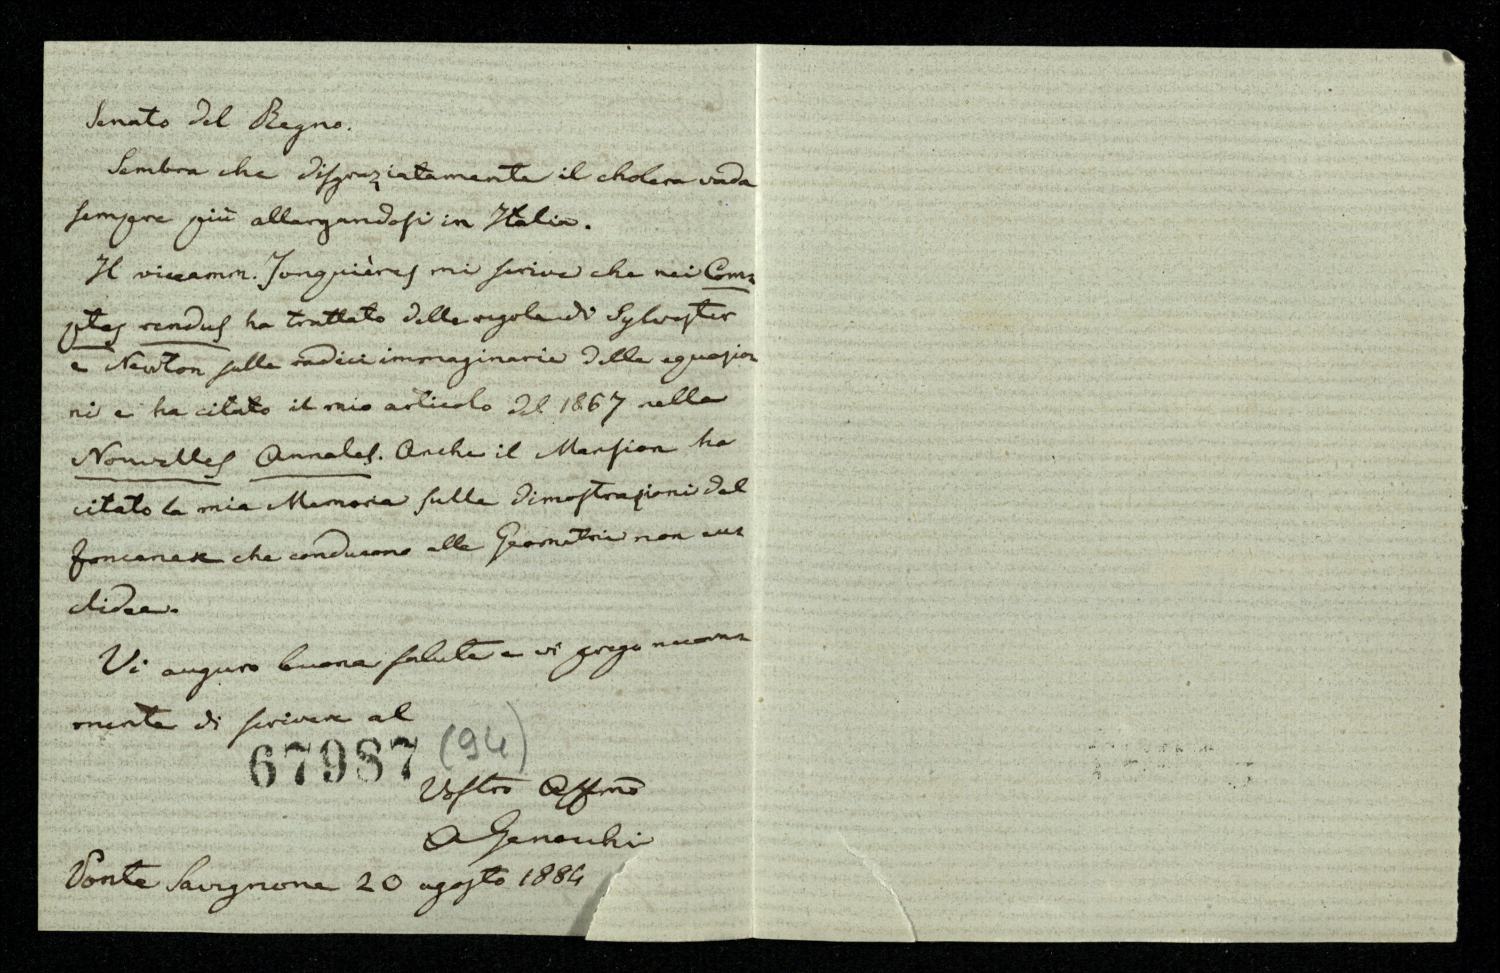 Senato del Regno.
Sembra che disgraziatamente il cholera vada
sempre più allargandosi in Italia.
Il viceamm. Jonquières mi scrive che nei Com=
ptes rendus ha trattato delle regole di Sylvester
e Newton sulle radici immaginarie delle equazio=
ni e ha citato il mio articolo del 1867 nelle
Nouvelles Annales. Anche il Mansion ha
citato la mia Memoria sulle dimostrazioni del
Foncenex che conducono alla Geometria non eu=
clidea.
Vi auguro buona salute e vi prego nuova=
mente di scrivere al
67987 (94)
Vostro Affmo
A Genocchi
Ponte Savignone 20 agosto 1884